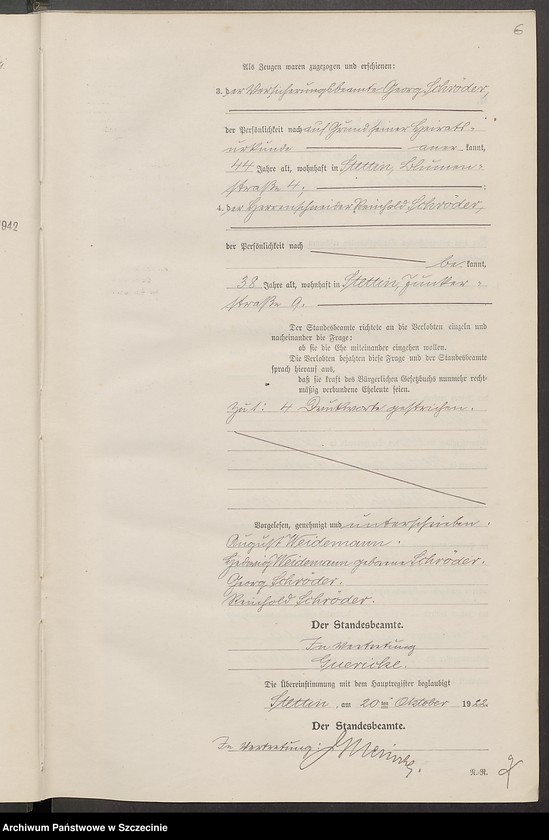 6
Als Zeugen waren zugezogen und erschienen:
3. der Versicherungsbeamte Georg Schröder,
der Persönlichkeit nach auf Grund seiner Heirats-
urkunde aner kannt,
44 Jahre alt, wohnhaft in Stettin, Blumen-
straße 4;
4. der Herrenschneider Reinhold Schröder,
1942
der Persönlichkeit nach
be kannt,
38 Jahre alt, wohnhaft in Stettin, Junker-
straße 9.
Der Standesbeamte richtete an die Verlobten einzeln und
nacheinander die Frage:
ob sie die Ehe miteinander eingehen wollen.
Die Verlobten bejahten diese Frage und der Standesbeamte
sprach hierauf aus,
daß sie kraft des Bürgerlichen Gesetzbuchs nunmehr recht-
mäßig verbundene Eheleute seien.
4 Druckworte gestrichen.
Vorgelesen, genehmigt und unterschrieben.
August Weidemann.
Hedwig Weidemann geborene Schröder.
Georg Schröder.
Reinhold Schröder.
Der Standesbeamte.
In Vertretung
Guericke.
Die Übereinstimmung mit dem Hauptregister beglaubigt
Stettin, am 20ten Oktober 1922.
Der Standesbeamte.
In Vertretung:
N.-R.
Archiwum Państwowe w Szczecinie